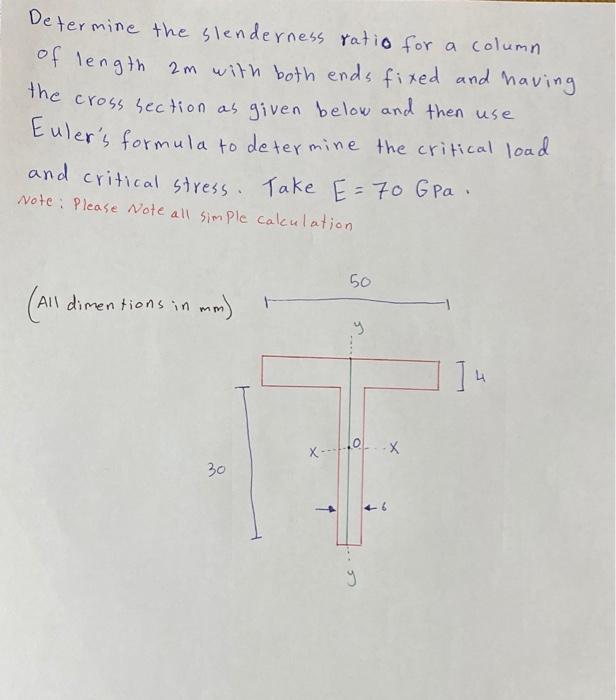 Determine the slenderness ratio for a column
of length 2m with both ends fixed and having
the cross section as given below and then use
Euler's formula to determine the critical load
and critical stress. Take E = 70 GPa.
Note: Please Note all simple calculation
50
(All dimentions in mm)
y
4
x O x
30
6
y